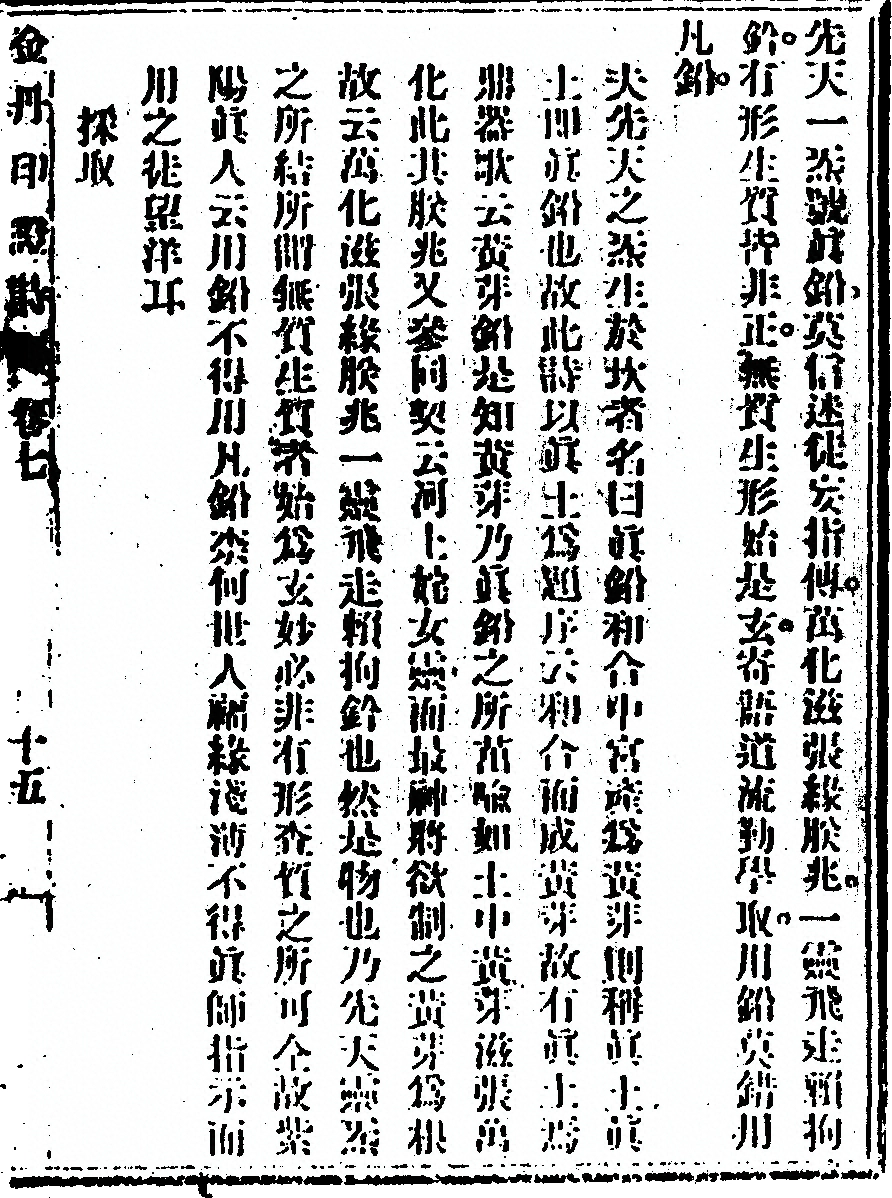 先天一炁號眞鉛莫信迷徒妄指傳萬化滋張緣朕兆一靈飛走賴拘
鈐有形生質皆非正無質生形始是玄寄語道流勤學取用鉛莫錯用
凡鉛
夫先天之炁生於坎者名曰眞鉛和合中宮產爲黃芽則稱眞土眞
土即眞鉛也故此詩以眞土爲題序云和合而成黃芽故有眞土焉
鼎器歌云黃芽鉛是知黃芽乃眞鉛之所萌喻如土中黃芽滋張萬
化此其朕兆又參同契云河上姹女靈而最神將欲制之黃芽爲根
故云萬化滋張緣朕兆一靈飛走賴拘鈐也然是物也乃先天靈炁
之所結所謂無質生質者始爲玄妙必非有形查質之所可仝故紫
陽眞人云用鉛不得用凡鉛柰何世人福緣淺薄不得眞師指示而
用之徒望洋耳
採取
金丹印證詩 卷七 十五